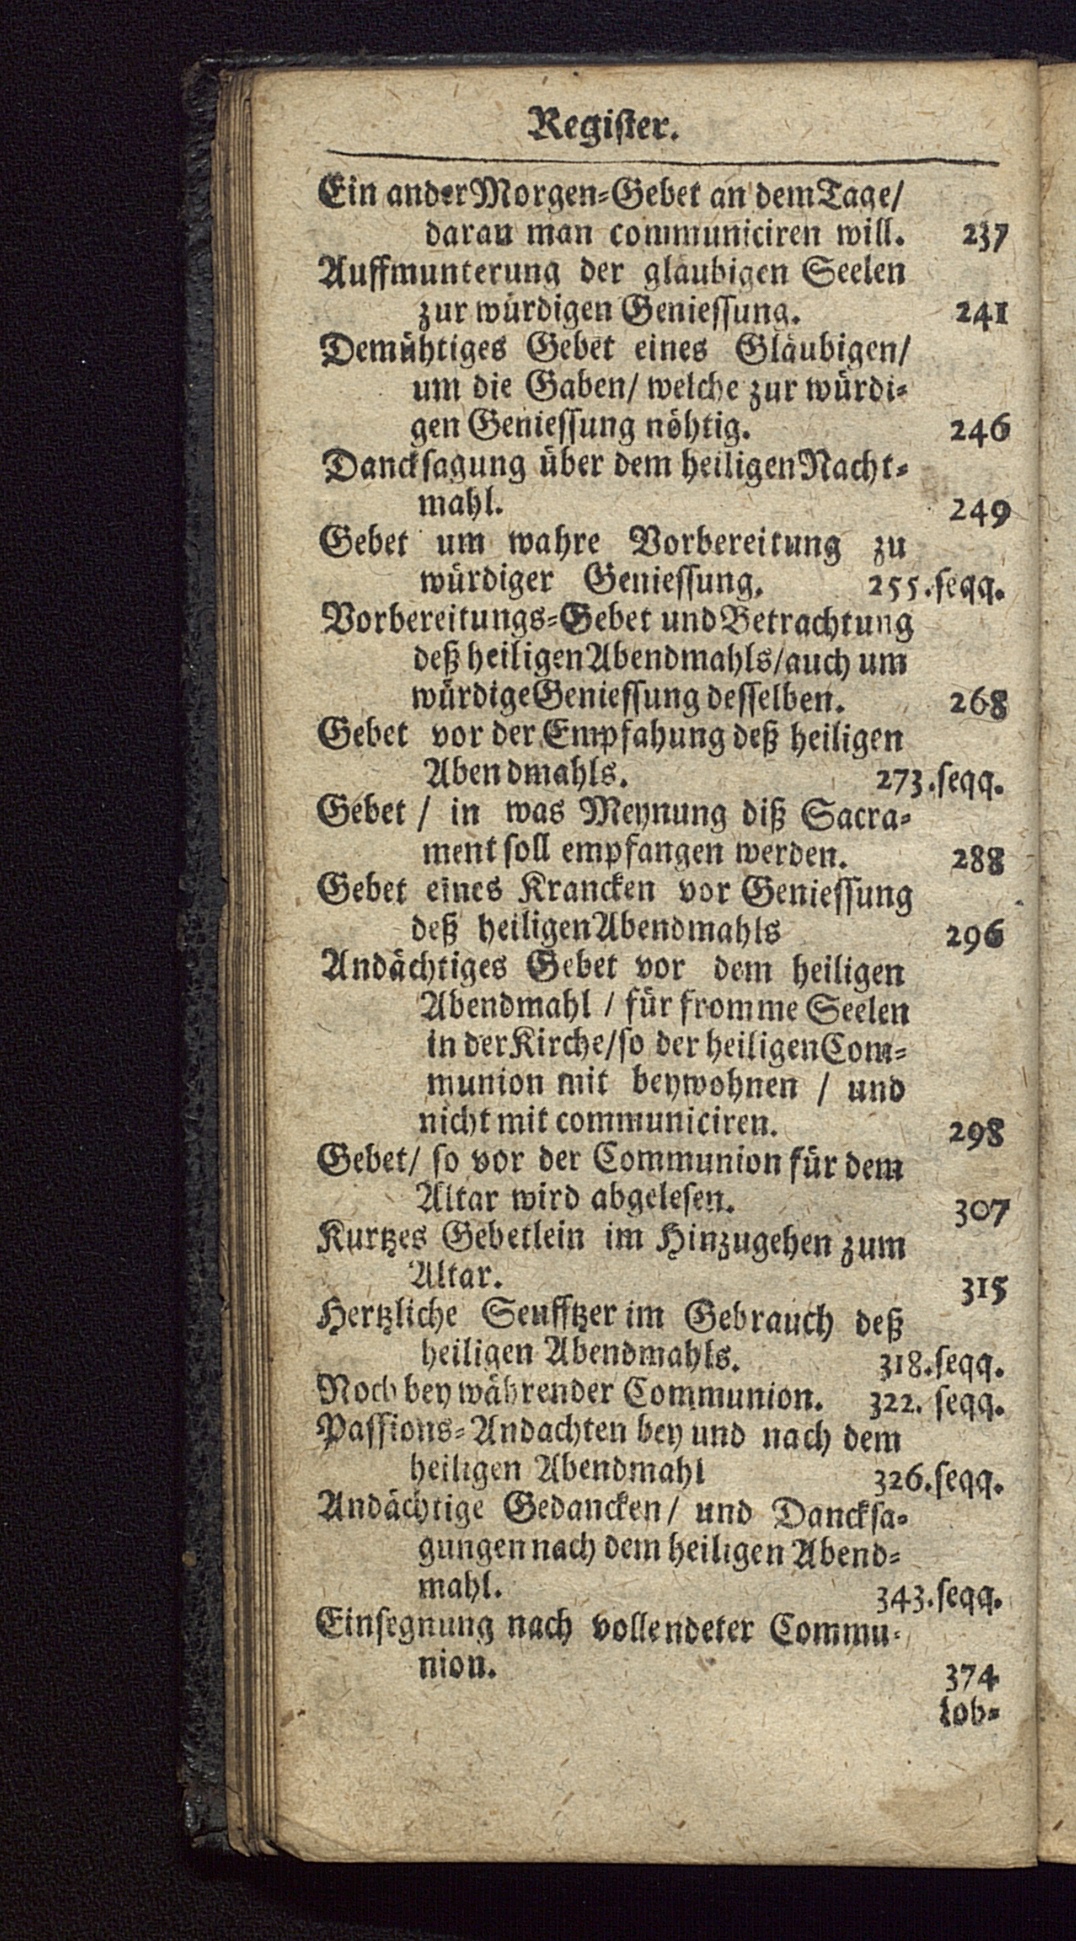 Register.
Ein ander Morgen-Gebet an dem Tage/
daran man communiciren will. 237
Auffmunterung der glaubigen Seelen
zur würdigen Geniessung. 241
Demühtiges Gebet eines Gläubigen/
um die Gaben/ welche zur würdi-
gen Geniessung nöhtig. 246
Dancksagung über dem heiligen Nacht-
mahl. 249
Gebet um wahre Vorbereitung zu
würdiger Geniessung. 255.seqq.
Vorbereitungs-Gebet und Betrachtung
deß heiligen Abendmahls/auch um
würdige Geniessung desselben. 268
Gebet vor der Empfahung deß heiligen
Abendmahls. 273.seqq.
Gebet / in was Meynung diß Sacra-
ment soll empfangen werden. 288
Gebet eines Krancken vor Geniessung
deß heiligen Abendmahls 296
Andächtiges Gebet vor dem heiligen
Abendmahl / für fromme Seelen
in der Kirche/so der heiligen Com-
munion mit beywohnen / und
nicht mit communiciren. 298
Gebet/ so vor der Communion für dem
Altar wird abgelesen. 307
Kurtzes Gebetlein im Hinzugehen zum
Altar. 315
Hertzliche Seufftzer im Gebrauch deß
heiligen Abendmahls. 318.seqq.
Noch bey währender Communion. 322. seqq.
Passions-Andachten bey und nach dem
heiligen Abendmahl 326.seqq.
Andächtige Gedancken/ und Dancksa-
gungen nach dem heiligen Abend-
mahl. 343.seqq.
Einsegnung nach vollendeter Commu-
nion. 374
Lob-